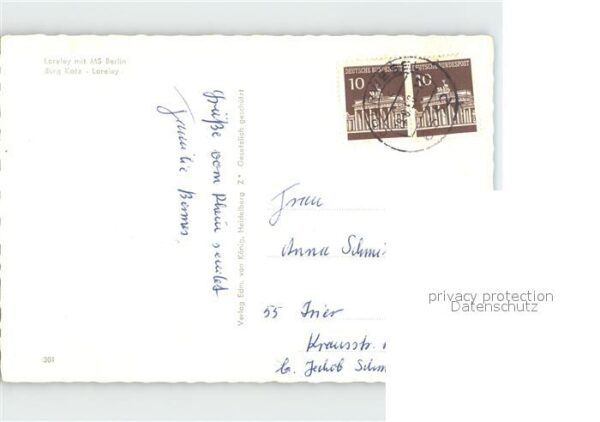 Loreley mit MS Berlin
Burg Katz - Loreley
Grüße vom Rhein sendet
Familie Bermes,
Verlag Edm. von König, Heidelberg Z* Gesetzlich geschützt
10 DEUTSCHE BUNDESPOST
10 DEUTSCHE BUNDESPOST
Frau
Anna Schmi
55 Trier
Krausstr.
b. Jakob Schm
301
privacy protection
Datenschutz